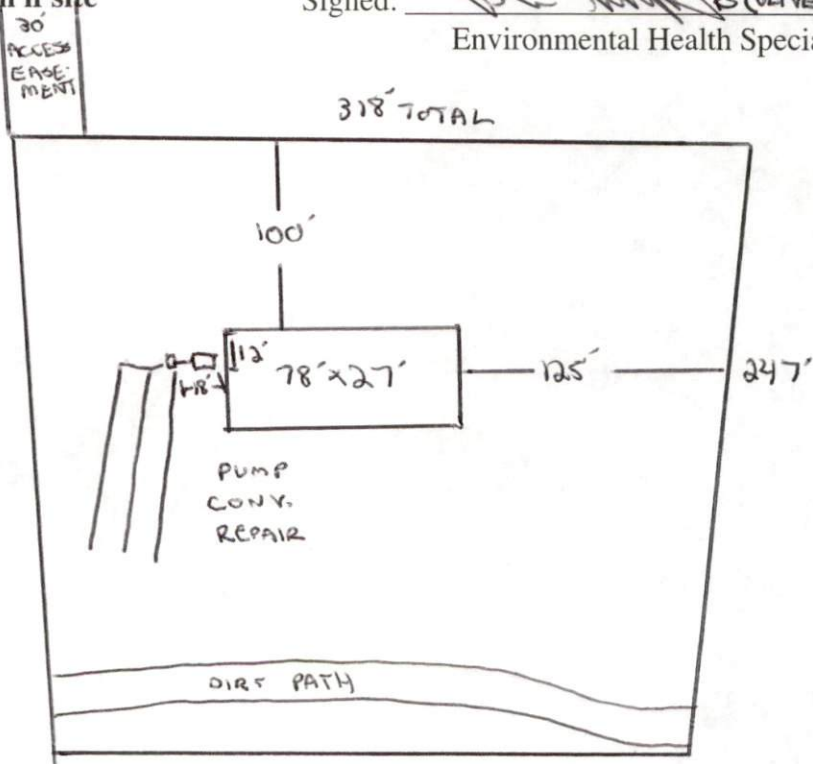 site
Signed:
Environmental Health Specia
30'
ACCESS
EASE-
MENT
318' TOTAL
100'
12'
78'x27'
18'
125'
247'
PUMP
CONV.
REPAIR
DIRT PATH